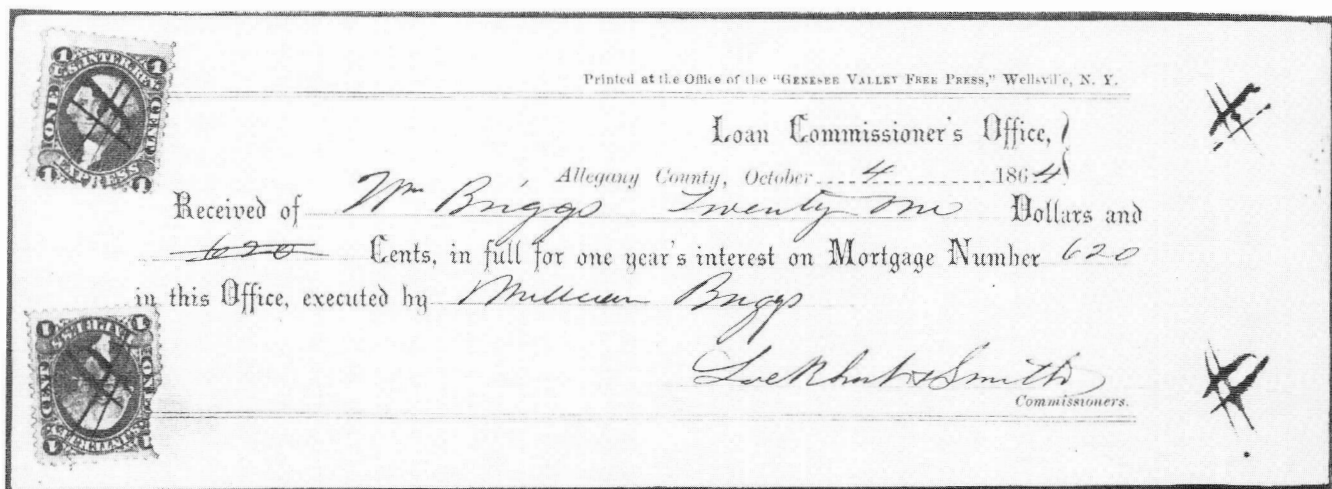 Printed at the Office of the "GENESEE VALLEY FREE PRESS," Wellsville, N. Y.
Loan Commissioner's Office,
Allegany County, October 4 1864
Received of Wm Briggs Twenty one Dollars and
620 Cents, in full for one year's interest on Mortgage Number 620
in this Office, executed by William Briggs
Lockhart & Smith
Commissioners.
1 1
ONE CENT
EXPRESS
1 1
1 1
ONE CENT
EXPRESS
1 1